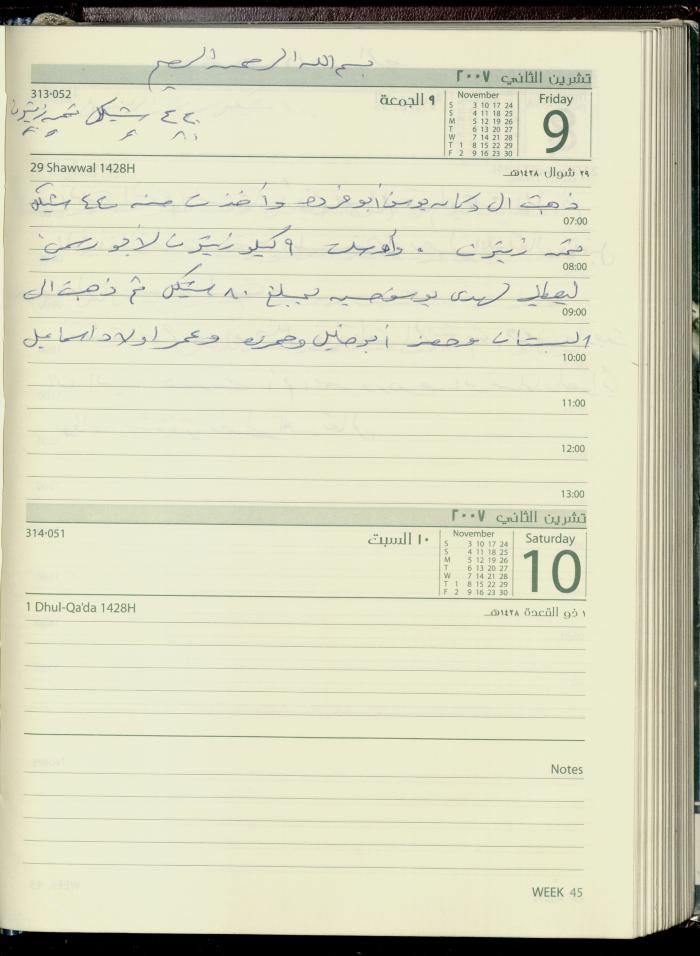 بسم الله الرحمن الرحيم
تشرين الثاني ٢٠٠٧
313-052
٩ الجمعة
November
S 3 10 17 24
S 4 11 18 25
M 5 12 19 26
T 6 13 20 27
W 7 14 21 28
T 1 8 15 22 29
F 2 9 16 23 30
Friday
9
شيكل ثمن زيتون
29 Shawwal 1428H
٢٩ شوال ١٤٢٨هـ
ذهبت الى دكانه يوسف أبو فرده وأخذت منه ٤٤ شيكل
07:00
ثمن زيتون . وأرسلت ٩ كيلو زيتون لأبو رسمي
08:00
ليعطي لهدى يوسف بمبلغ ٨٠ شيكل ثم ذهبت الى
09:00
البستان وحضر أبو خليل وحمزه وعمر اولاد اسماعيل
10:00
11:00
12:00
13:00
تشرين الثاني ٢٠٠٧
314-051
١٠ السبت
November
S 3 10 17 24
S 4 11 18 25
M 5 12 19 26
T 6 13 20 27
W 7 14 21 28
T 1 8 15 22 29
F 2 9 16 23 30
Saturday
10
1 Dhul-Qa'da 1428H
١ ذو القعدة ١٤٢٨هـ
Notes
WEEK 45